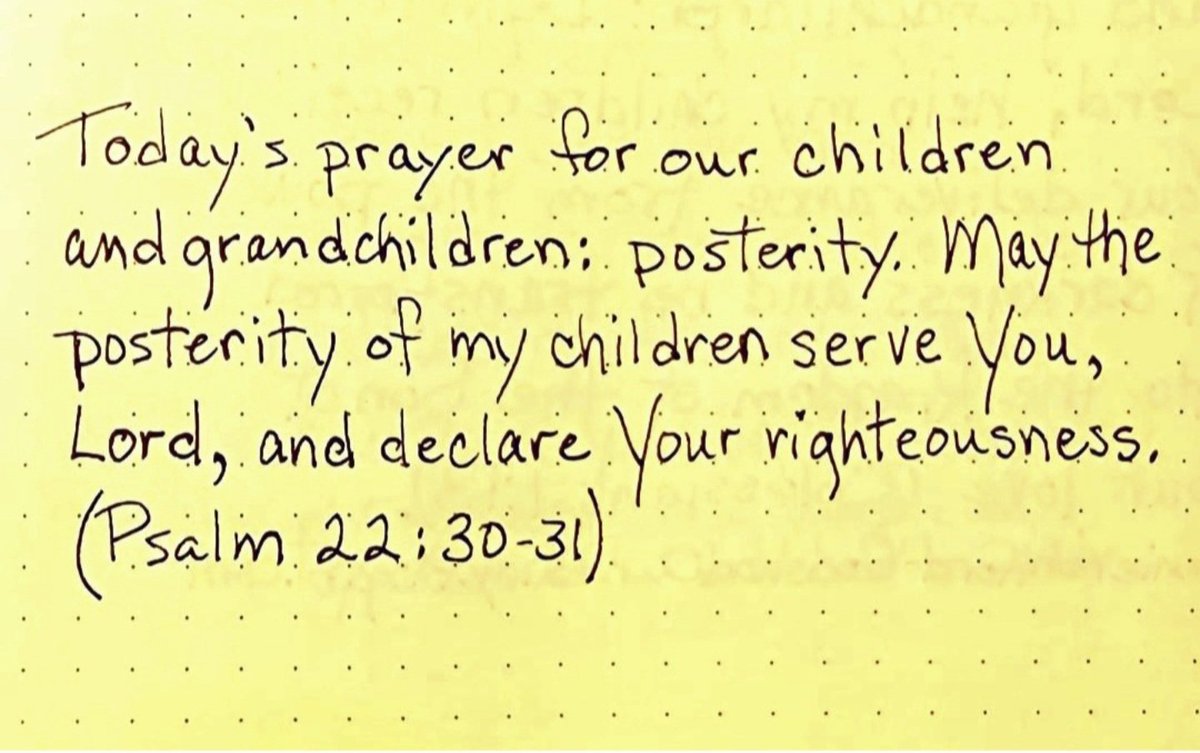 Today's prayer for our children
and grandchildren: posterity. May the
posterity of my children serve You,
Lord, and declare Your righteousness.
(Psalm 22:30-31)